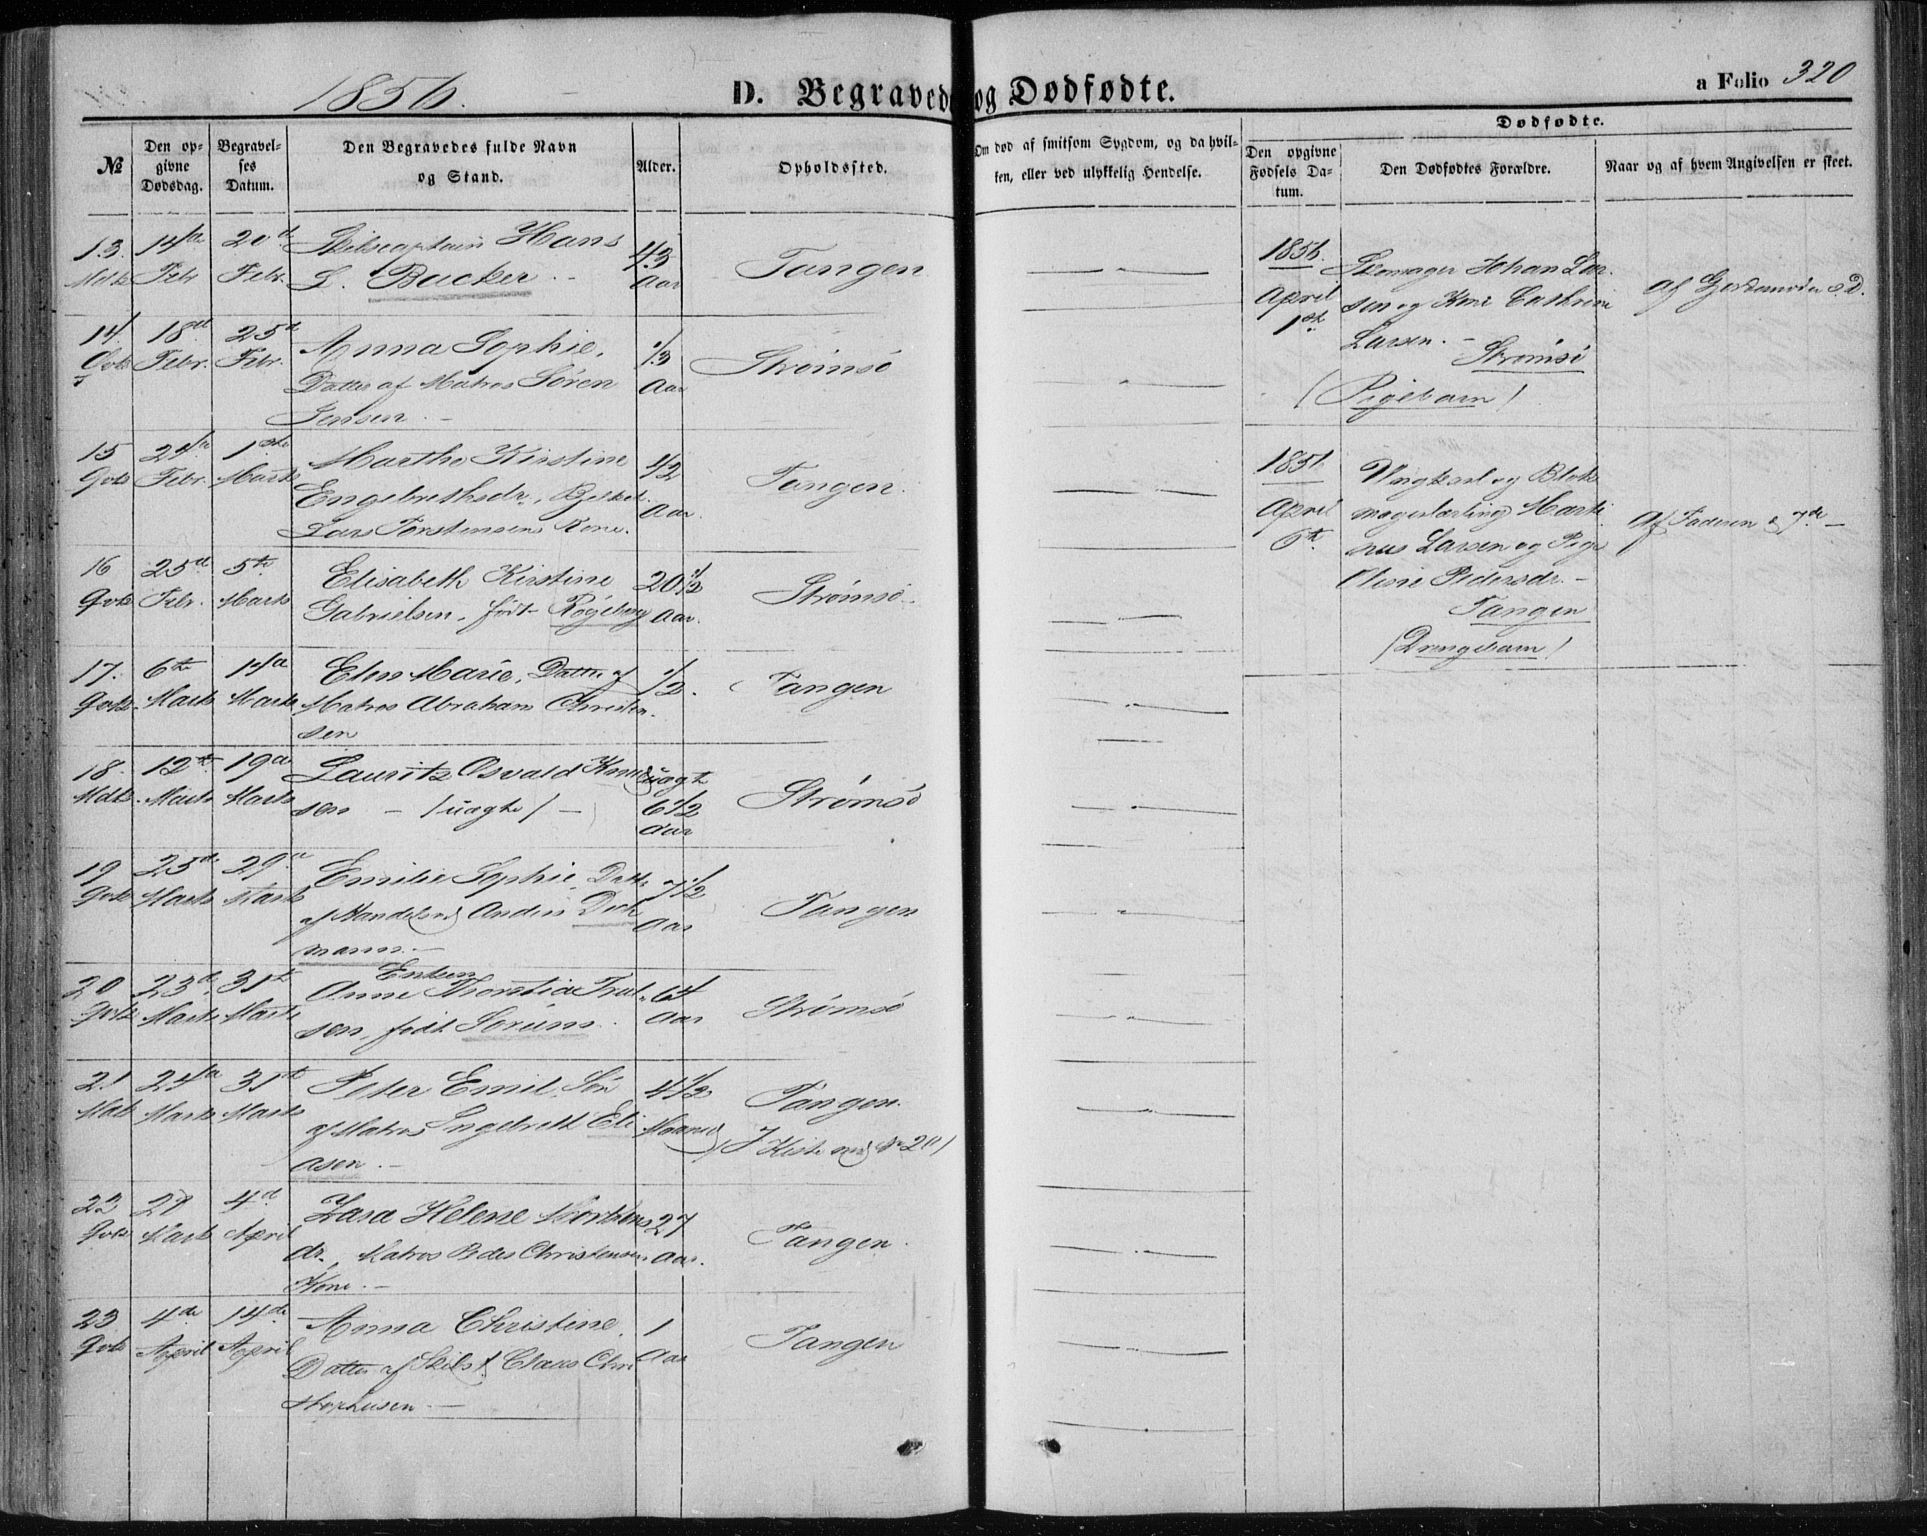 1856.
D. Begravede og Dødfødte.
a Folio 320
№
Den opgivne Dødsdag.
Begravelses Datum.
Den Begravedes fulde Navn og Stand.
Alder.
Opholdssted.
Om død af smitsom Sygdom, og da hvilken, eller ved ulykkelig Hendelse.
Dødfødte.
Den opgivne Fødsels Datum.
Den Dødfødtes Forældre.
Naar og af hvem Angivelsen er skeet.
13. 14de 20de Skibscaptain Hans 43
Mdk Febr Febr. L. Backer. Aar Tangen
14. 18de 25de Anna Sophie, 1/3
Qvk Febr. Febr. Datter af Matros Søren Aar Strømsø
Jensen.
15 24de 1ste Marthe Kirstine 42
Qvk Febr. Marts Engebrethsdr, Aar Tangen.
Lars Torstensens Kone.
16 25de 5te Elisabeth Kirstine 20 1/2
Qvk Febr. Marts Gabrielsen, født Røgeberg Aar. Strømsø
17. 6te 14de Elen Marie, Datter af 1/2
Qvk. Marts Marts Matros Abraham Christen Tangen
sen
18. 12te 19de Lauritz Osvald uægte
Mdk. Marts Marts sen - /uægte/ - 6 1/2 Strømsø
Aar
19 25de 29de Emilie Sophie, Datter 7 1/2
Qvk Marts Marts af Anders Dick Aar Tangen
mann.
Enken
20 23de 31te Anne Trul 64
Qvk Marts Marts sen, født Sørum. Aar Strømsø
21 24de 31te Peter Emil, Søn 4 1/2
Mdk Marts Marts af Matros Ingebreth Eli Tangen.
asen. /I Kiste med No 20/
22 28 4de Helene 27
Qvk Marts April dr., Matros Peder Christensens Aar. Tangen.
Kone.
23 4de 14de Anna Christine, 1
Qvk April April Datter af Claus Chri Aar Tangen
stophersen.
1856.
April
1ste
Skomager Johan Lar
sen og Kone Cathrine
Larsen.
Strømsø
/Pigebarn/
Af Gjordemoder s. D.
1856
April
6te
Ungkarl og Blok
magerlærling Marti
nus Larsen og Pige
Oline Pedersdr.
Tangen
/Drengebarn/
Af Faderen d. 7de